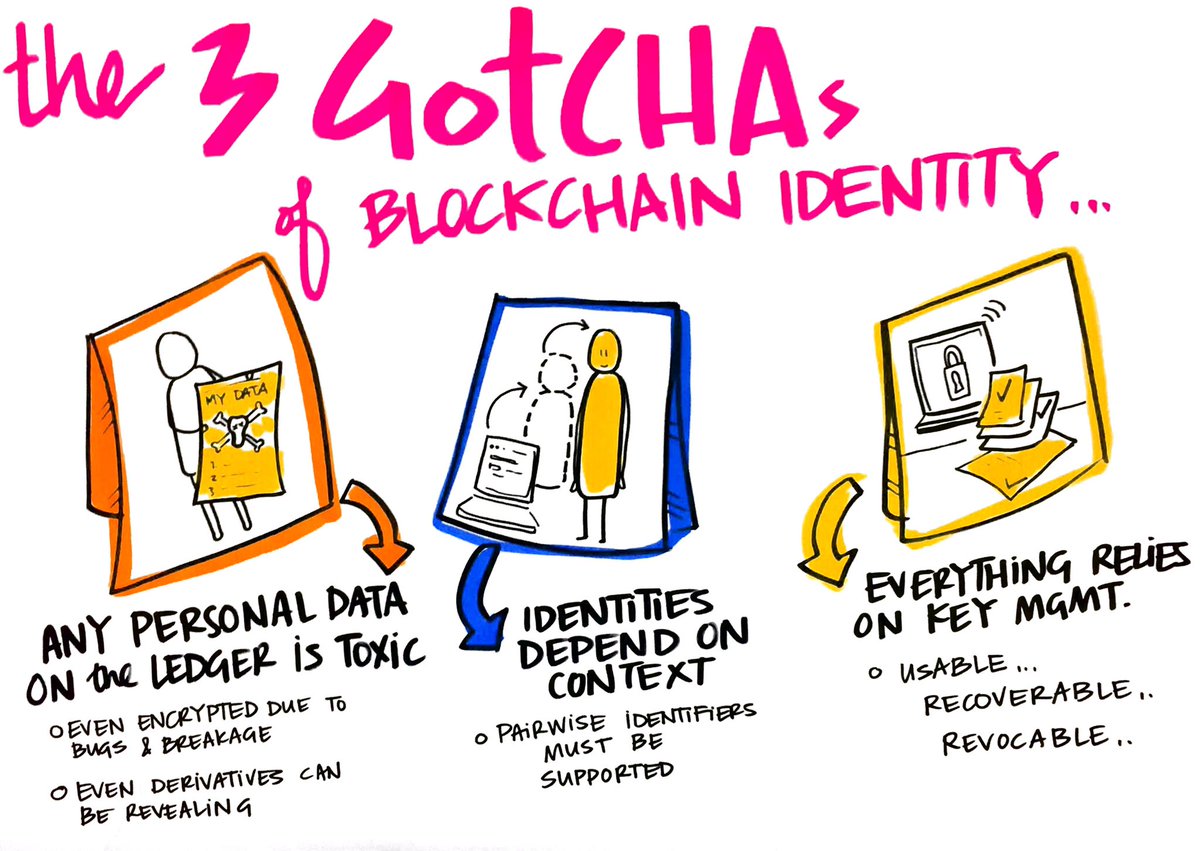 the 3 GotCHAs
of BLOCKCHAIN IDENTITY...
MY DATA
1.
2.
3
ANY PERSONAL DATA
ON the LEDGER is TOXIC
O EVEN ENCRYPTED DUE TO
BUGS & BREAKAGE
O EVEN DERIVATIVES CAN
BE REVEALING
IDENTITIES
DEPEND ON
CONTEXT
O PAIRWISE IDENTIFIERS
MUST BE
SUPPORTED
EVERYTHING RELIES
ON KEY MGMT.
O USABLE...
RECOVERABLE..
REVOCABLE..